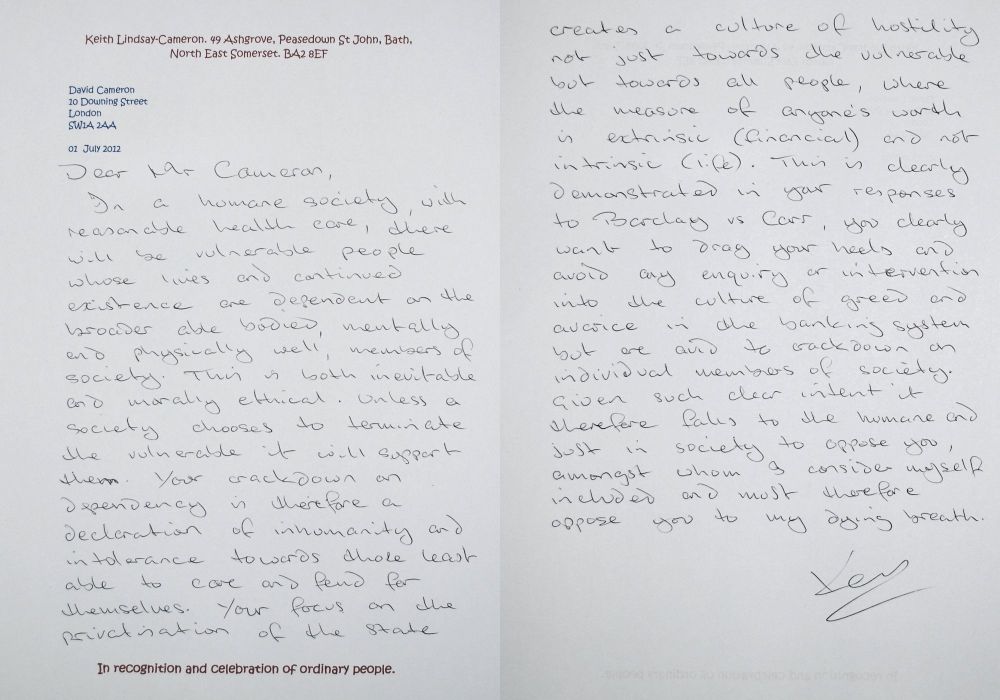 Keith Lindsay-Cameron. 49 Ashgrove, Peasedown St John, Bath,
North East Somerset. BA2 8EF
David Cameron
10 Downing Street
London
SW1A 2AA
01 July 2012
Dear Mr Cameron,
In a humane society, with
reasonable health care, there
will be vulnerable people
whose lives and continued
existence are dependent on the
broader able bodied, mentally
and physically well, members of
society. This is both inevitable
and morally ethical. Unless a
society chooses to terminate
the vulnerable it will support
them. Your crackdown on
dependency is therefore a
declaration of inhumanity and
intolerance towards those least
able to care and fend for
themselves. Your focus on the
privatisation of the state
In recognition and celebration of ordinary people.
creates a culture of hostility
not just towards the vulnerable
but towards all people, where
the measure of anyone's worth
is extrinsic (financial) and not
intrinsic (life). This is clearly
demonstrated in your responses
to Barclay vs Carr, you clearly
want to drag your heels and
avoid any enquiry or intervention
into the culture of greed and
avarice in the banking system
but are avid to crackdown on
individual members of society.
Given such clear intent it
therefore falls to the humane and
just in society to oppose you,
amongst whom I consider myself
included and must therefore
oppose you to my dying breath.